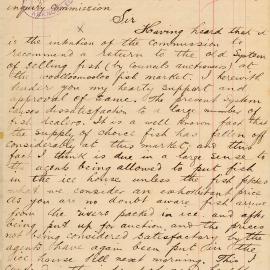 inquiry Commission
Sir
Having heard that it
is the intention of the Commission to
recommend a return to the old system
of selling fish (by Council auctioneers) at
the Woolloomooloo fish market. I herewith
tender you my hearty support and
approval of same. The present system
causes dissatisfaction to a large number of
fish dealers. It is a well known fact that
the supply of choice fish has fallen off
considerably at this market, and this
fact I think is due in a large sense to
the agents being allowed to put fish
in the ice house unless the fish
what we consider an exhorbitant price
as you are no doubt aware fish arrive
from the packed in ice, and after
being put up for auction, and the price
not being considered satisfactory by the
agents have again been put in the
ice house till next morning. This I